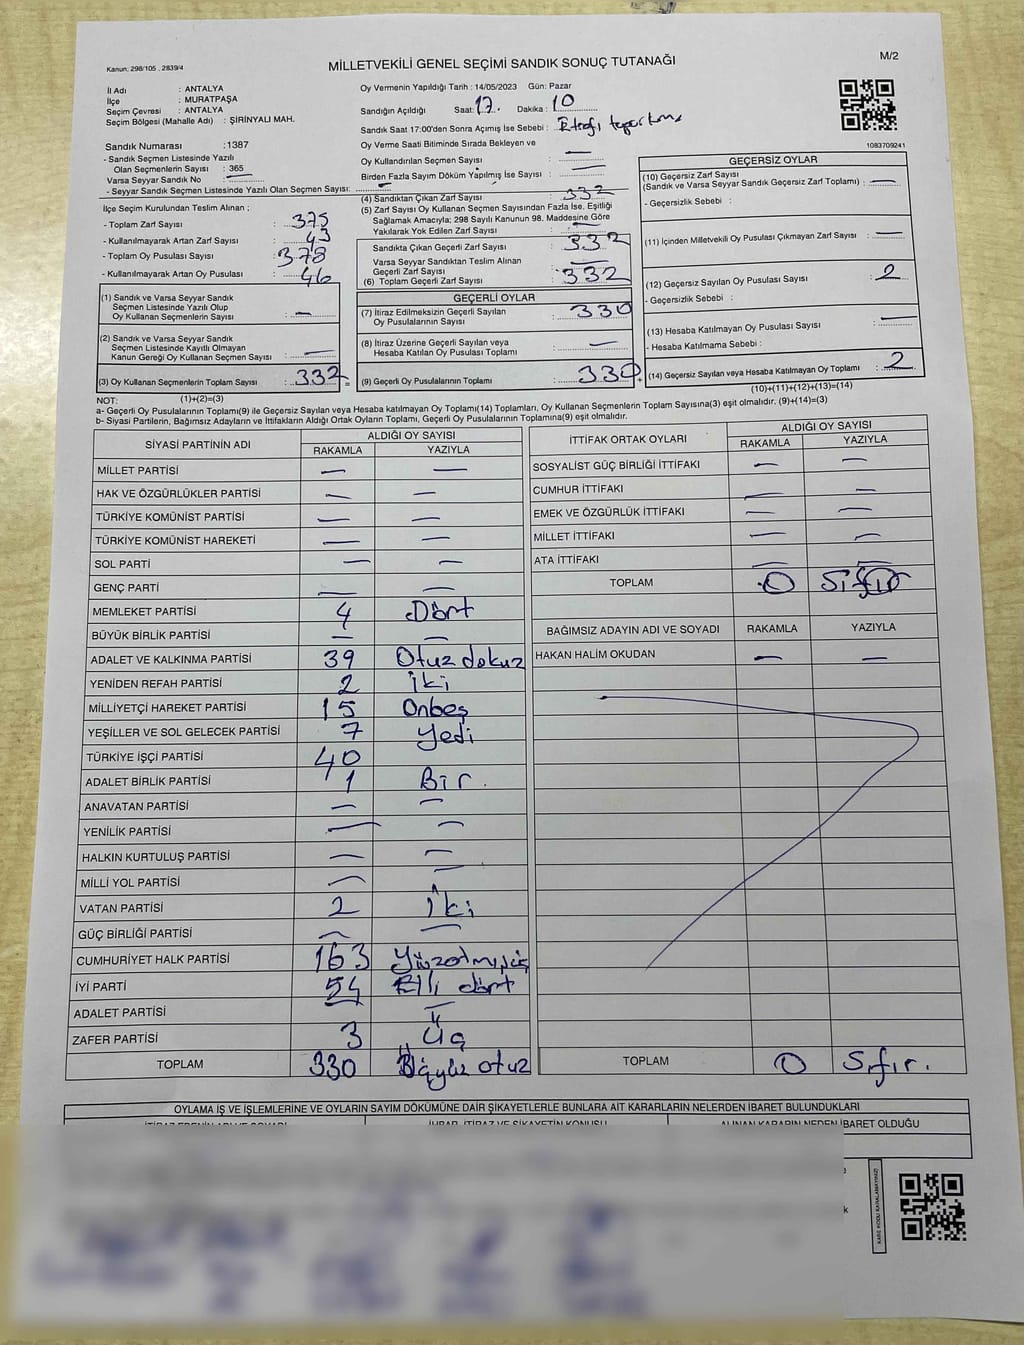 Kanun: 298/105 , 2839/4
MİLLETVEKİLİ GENEL SEÇİMİ SANDIK SONUÇ TUTANAĞI
M/2
İl Adı : ANTALYA
İlçe : MURATPAŞA
Seçim Çevresi : ANTALYA
Seçim Bölgesi (Mahalle Adı) : ŞİRİNYALI MAH.
Sandık Numarası :1387
- Sandık Seçmen Listesinde Yazılı
Olan Seçmenlerin Sayısı : 365
Varsa Seyyar Sandık No : —
- Seyyar Sandık Seçmen Listesinde Yazılı Olan Seçmen Sayısı: —
Oy Vermenin Yapıldığı Tarih : 14/05/2023 Gün: Pazar
Sandığın Açıldığı Saat: 17 Dakika : 10
Sandık Saat 17:00'den Sonra Açımış İse Sebebi :
Oy Verme Saati Bitiminde Sırada Bekleyen ve
Oy Kullandırılan Seçmen Sayısı : —
Birden Fazla Sayım Döküm Yapılmış İse Sayısı : —
1083709241
İlçe Seçim Kurulundan Teslim Alınan ;
- Toplam Zarf Sayısı : 375
- Kullanılmayarak Artan Zarf Sayısı : 43
- Toplam Oy Pusulası Sayısı : 378
- Kullanılmayarak Artan Oy Pusulası : 46
(1) Sandık ve Varsa Seyyar Sandık
Seçmen Listesinde Yazılı Olup
Oy Kullanan Seçmenlerin Sayısı : —
(2) Sandık ve Varsa Seyyar Sandık
Seçmen Listesinde Kayıtlı Olmayan
Kanun Gereği Oy Kullanan Seçmen Sayısı : —
(3) Oy Kullanan Seçmenlerin Toplam Sayısı : 332 =
(1)+(2)=(3)
(4) Sandıktan Çıkan Zarf Sayısı : 332
(5) Zarf Sayısı Oy Kullanan Seçmen Sayısından Fazla İse, Eşitliği
Sağlamak Amacıyla; 298 Sayılı Kanunun 98. Maddesine Göre
Yakılarak Yok Edilen Zarf Sayısı : —
Sandıkta Çıkan Geçerli Zarf Sayısı : 332
Varsa Seyyar Sandıktan Teslim Alınan
Geçerli Zarf Sayısı : —
(6) Toplam Geçerli Zarf Sayısı : 332
GEÇERLİ OYLAR
(7) İtiraz Edilmeksizin Geçerli Sayılan
Oy Pusulalarının Sayısı : 330
(8) İtiraz Üzerine Geçerli Sayılan veya
Hesaba Katılan Oy Pusulası Toplamı : —
(9) Geçerli Oy Pusulalarının Toplamı : 330 +
GEÇERSİZ OYLAR
(10) Geçersiz Zarf Sayısı
(Sandık ve Varsa Seyyar Sandık Geçersiz Zarf Toplamı) : —
- Geçersizlik Sebebi :
(11) İçinden Milletvekili Oy Pusulası Çıkmayan Zarf Sayısı : —
(12) Geçersiz Sayılan Oy Pusulası Sayısı : 2
- Geçersizlik Sebebi :
(13) Hesaba Katılmayan Oy Pusulası Sayısı : —
- Hesaba Katılmama Sebebi :
(14) Geçersiz Sayılan veya Hesaba Katılmayan Oy Toplamı : 2
(10)+(11)+(12)+(13)=(14)
NOT:
a- Geçerli Oy Pusulalarının Toplamı(9) ile Geçersiz Sayılan veya Hesaba katılmayan Oy Toplamı(14) Toplamları, Oy Kullanan Seçmenlerin Toplam Sayısına(3) eşit olmalıdır. (9)+(14)=(3)
b- Siyasi Partilerin, Bağımsız Adayların ve İttifakların Aldığı Ortak Oyların Toplamı, Geçerli Oy Pusulalarının Toplamına(9) eşit olmalıdır.
SİYASİ PARTİNİN ADI ALDIĞI OY SAYISI
RAKAMLA YAZIYLA
MİLLET PARTİSİ — —
HAK VE ÖZGÜRLÜKLER PARTİSİ — —
TÜRKİYE KOMÜNİST PARTİSİ — —
TÜRKİYE KOMÜNİST HAREKETİ — —
SOL PARTİ — —
GENÇ PARTİ — —
MEMLEKET PARTİSİ 4 Dört
BÜYÜK BİRLİK PARTİSİ — —
ADALET VE KALKINMA PARTİSİ 39 Otuz dokuz
YENİDEN REFAH PARTİSİ 2 İki
MİLLİYETÇİ HAREKET PARTİSİ 15 Onbeş
YEŞİLLER VE SOL GELECEK PARTİSİ 7 Yedi
TÜRKİYE İŞÇİ PARTİSİ 40
ADALET BİRLİK PARTİSİ 1 Bir.
ANAVATAN PARTİSİ — —
YENİLİK PARTİSİ — —
HALKIN KURTULUŞ PARTİSİ — —
MİLLİ YOL PARTİSİ — —
VATAN PARTİSİ 2 İki
GÜÇ BİRLİĞİ PARTİSİ — —
CUMHURİYET HALK PARTİSİ 163
İYİ PARTİ 54 Elli dört
ADALET PARTİSİ — —
ZAFER PARTİSİ 3 Üç
TOPLAM 330 Üçyüz otuz
İTTİFAK ORTAK OYLARI ALDIĞI OY SAYISI
RAKAMLA YAZIYLA
SOSYALİST GÜÇ BİRLİĞİ İTTİFAKI — —
CUMHUR İTTİFAKI — —
EMEK VE ÖZGÜRLÜK İTTİFAKI — —
MİLLET İTTİFAKI — —
ATA İTTİFAKI — —
TOPLAM 0 Sıfır
BAĞIMSIZ ADAYIN ADI VE SOYADI RAKAMLA YAZIYLA
HAKAN HALİM OKUDAN — —
TOPLAM 0 Sıfır.
OYLAMA İŞ VE İŞLEMLERİNE VE OYLARIN SAYIM DÖKÜMÜNE DAİR ŞİKAYETLERLE BUNLARA AİT KARARLARIN NELERDEN İBARET BULUNDUKLARI
İTİRAZ EDENİN ADI VE SOYADI İHBAR, İTİRAZ VE ŞİKAYETİN KONUSU ALINAN KARARIN NEDEN İBARET OLDUĞU
KARE KODU KARALAMAYINIZ!